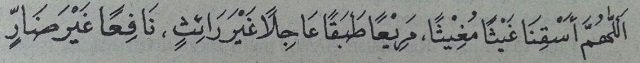 اَللّٰهُمَّ اَسْقِنَا غَيْثًا مُغِيْثًا، مَرِيْعًا طَبَقًا عَاجِلًا غَيْرَ رَائِثٍ، نَافِعًا غَيْرَ ضَارٍّ